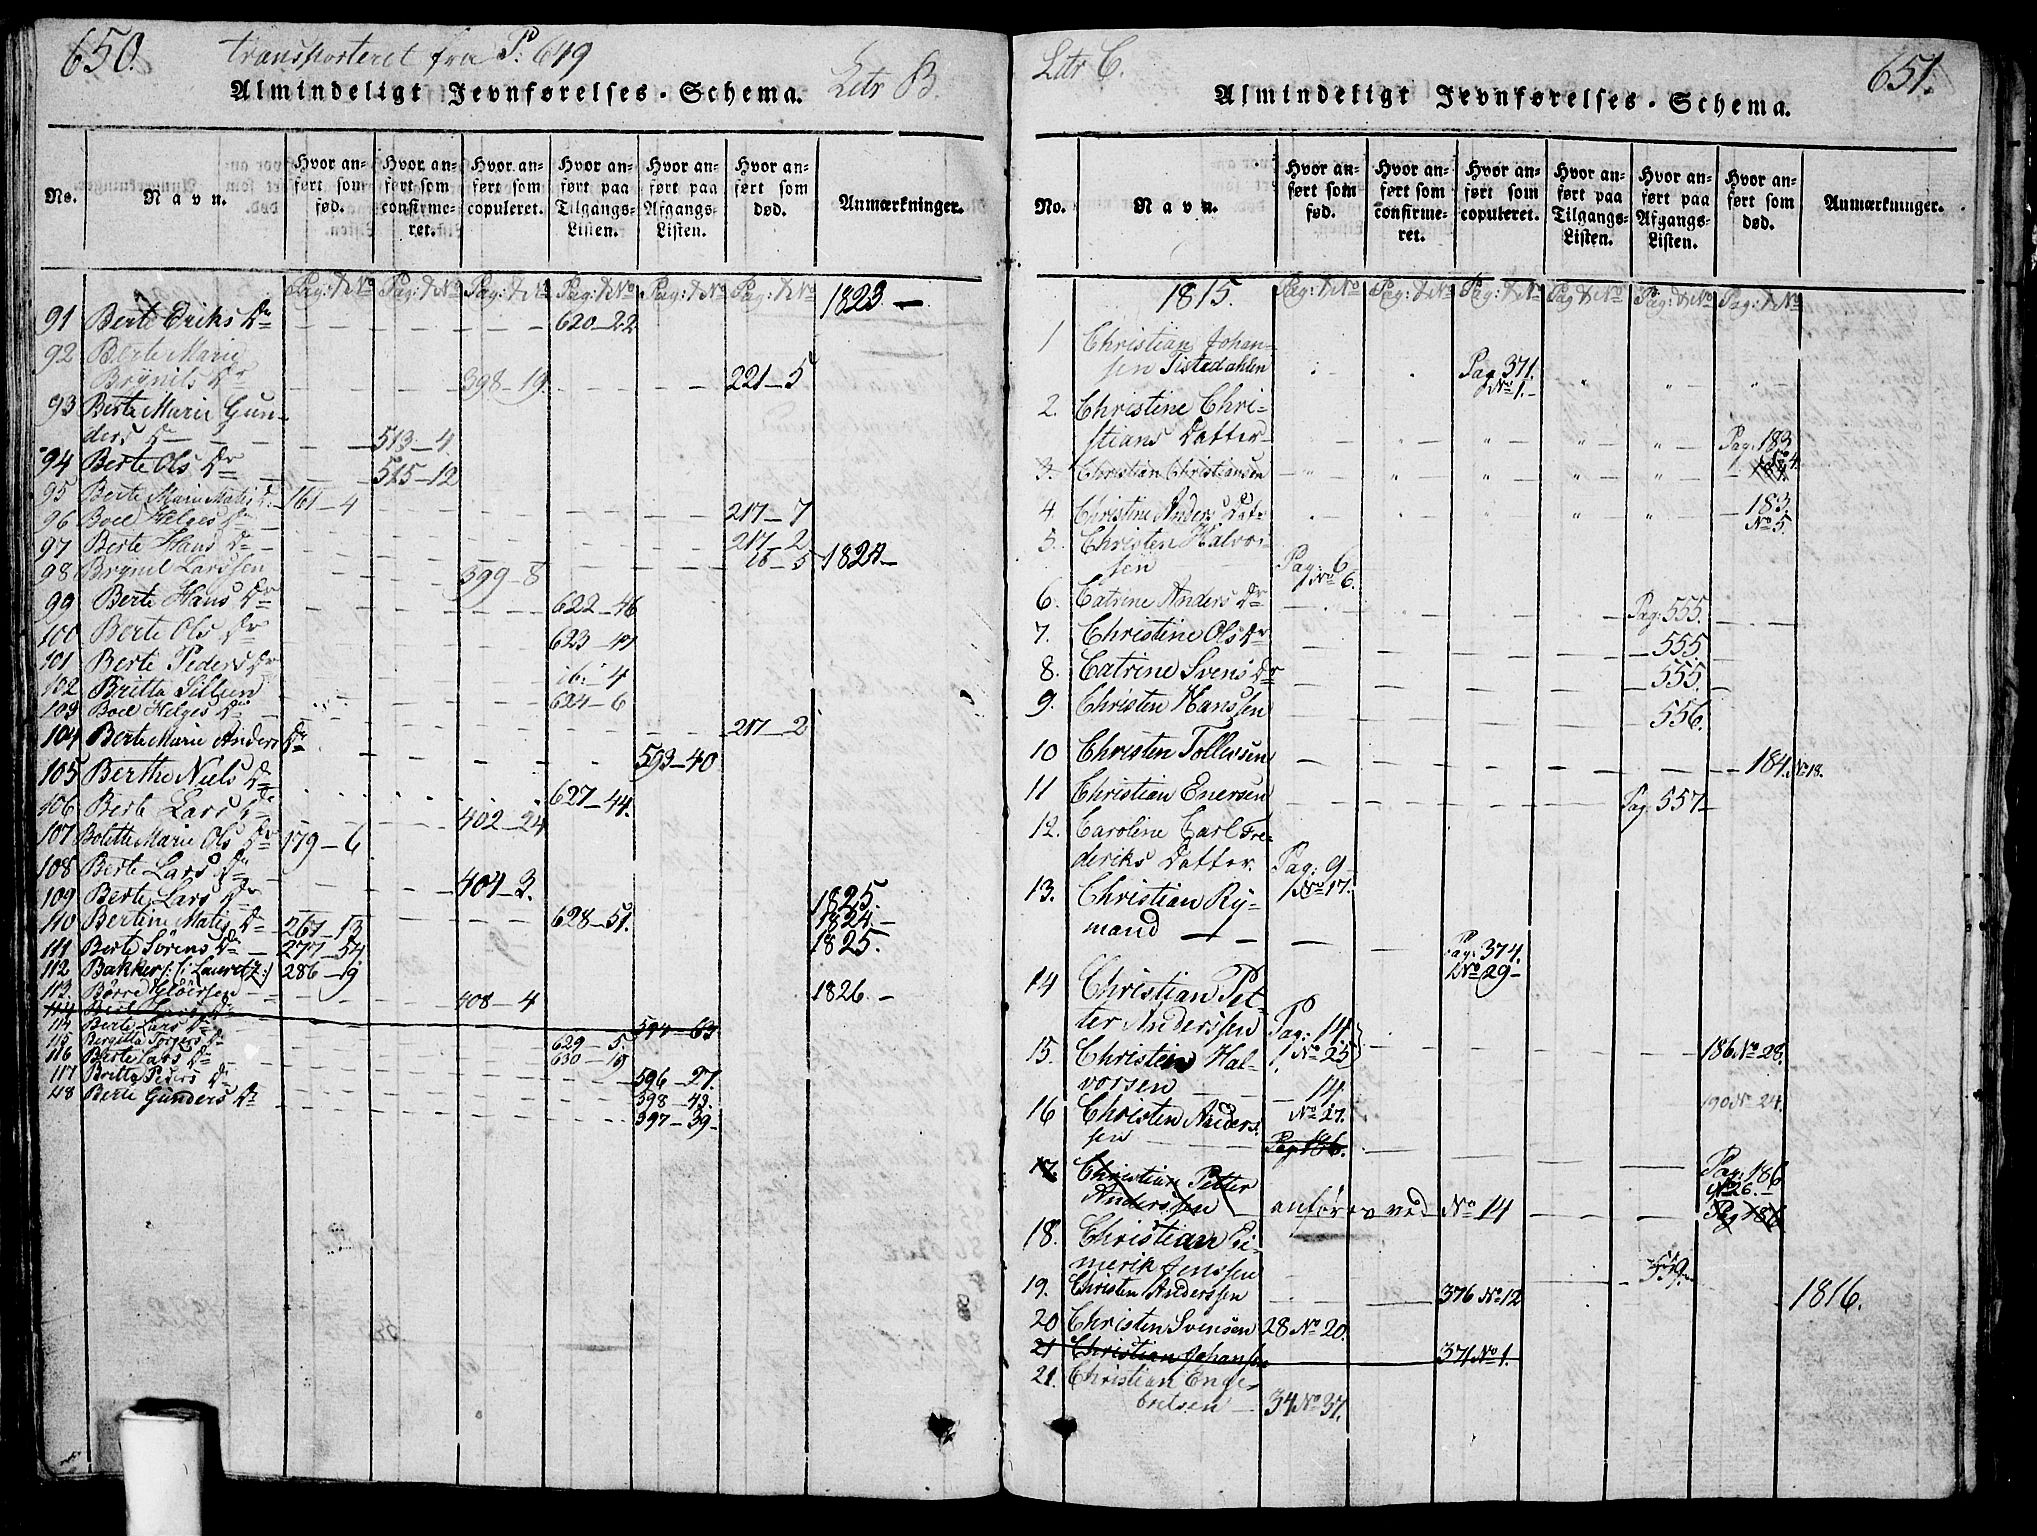 650.
transporteret fra P. 649
Litr B.
Almindeligt Jevnførelses-Schema.
No.
Navn.
Hvor anført som fød.
Hvor anført som confirmeret.
Hvor anført som copuleret.
Hvor anført paa Tilgangs-Listen.
Hvor anført paa Afgangs-Listen.
Hvor anført som død.
Anmærkninger.
Pag: & No Pag: & No Pag: & No Pag: & No Pag: & No Pag: & No 1823 —
91 Berte Eriks Dr 620-22
92 Berte Marie
Brynils Dr 398-19. 221-5
93 Berte Marie Gun-
ders Dr 513-4
94 Berte Ols Dr 515-12
95 Berte Marie Matis D. 161-4
96 Boel Helges Dr 217-7
97 Berte Hans Dr 217-2
98 Brynil Larssen 399-8 ib-5 1824-
99 Berte Hans Dr 622-46
100 Berte Ols Dr 623-4
101 Berte Peders Dr ib-4
102 Britta Sillien 624-6
103 Boel Helges Dr 217-2
104 Berte Marie Anders Dr 593-40
105 Berthe Niels Dr 627-44.
106 Berte Lars Dr 402-24
107 Bolette Marie Ols Dr 179-6
108 Berte Lars Dr 404-3.
109 Berte Lars Dr 628-51. 1825.
110 Bertine Matis Dr 267-13 1824.-
111 Berte Sörens Dr 277-54 1825.
112 Bakker /: i Lauretz :/ 286-9
113. Börre Gloersen 408-4 1826.-
114 Berte Lars Dr 594-63
115 Bergitta Torgers Dr 629-5.
116 Berte Lars Dr 630-19
117 Britta Peders Dr 596-27.
118 Berte Gunders Dr 398-43.
397-39-
Litr C.
651.
Almindeligt Jevnførelses-Schema.
No.
Navn.
Hvor anført som fød.
Hvor anført som confirmeret.
Hvor anført som copuleret.
Hvor anført paa Tilgangs-Listen.
Hvor anført paa Afgangs-Listen.
Hvor anført som død.
Anmærkninger.
1815. Pag: & No Pag: & No Pag: & No Pag & No Pag: & No Pag: & No
1 Christian Johan-
sen Tistedahlen Pag 371.
No 1.-
2. Christine Chri-
stians Datter Pag: 183
No 4.
3. Christian Christiansen
4. Christine Anders Datr 183.
No 5.
5. Christen Halvor-
sen Pag: 6
No 6.
6. Catrine Anders Dr Pag: 555.
7. Christine Ols Dr 555.
8. Catrine Svens Dr 555.
9. Christen Hanssen 556.
10 Christen Tollevsen 184. No 18.
11 Christian Enersen Pag. 557-
12. Caroline Carl Fre-
deriks Datter. Pag: 9-
No 17.
13. Christian Ry-
mand Pag: 374.
No 29-
14 Christian Pet-
ter Anderssen Pag: 14.
No 25 186 No 28.
15. Christen Hal-
vorsen 14.
No 27. 190 No 24.
16 Christen Anders-
sen Pag 186. Pag: 186
No 26.-
17. Christian Petter
Anderssen anföres ved No 14 Pag 186
18. Christian Ei-
merik Jenssen 559.
19. Christen Anderssen 376 No 12 1816.
20 Christen Svensen 28 No 20.
21 Christian Johansen 371 No 1.
21. Christian Enge-
bretsen 34 No 37.